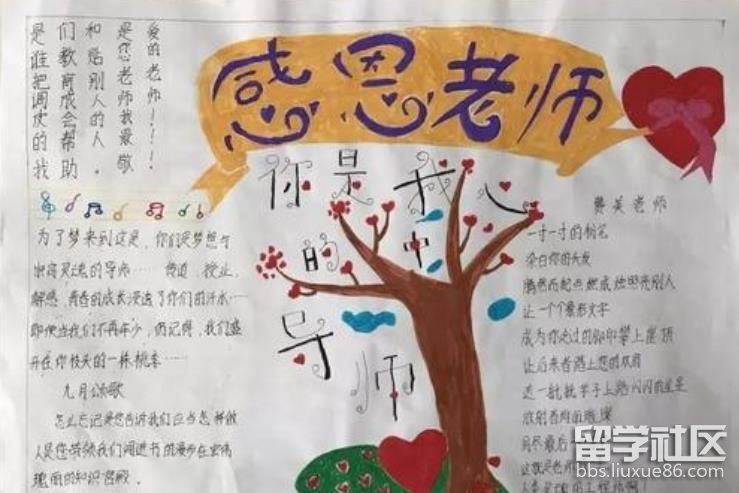 感恩老师
是谁把调皮的我
们教育成会帮助
和给别人的人。
是您老师我最敬
爱的老师！！！
你是我心
中的
导师
为了梦来到这是，你们是梦想与
灵魂的导师……传道、授业、
解惑，青春的成长浸透了你们的汗水……
即使当我们不再年少，仍记得，我们盛
开在你枝头的一株桃李……
九月颂歌
怎么忘记是您告诉我们应当怎样做
人是您带领我们闯进书的漫步在宏伟
瑰丽的知识宫殿。
赞美老师
一寸一寸的粉笔
染白你的头发
腾然而起点燃成烛照亮别人
让一个个象形文字
成为你走过的脚印攀上崖顶
让后来者踏上您的双肩
留学社区
bbs.liuxue86.com